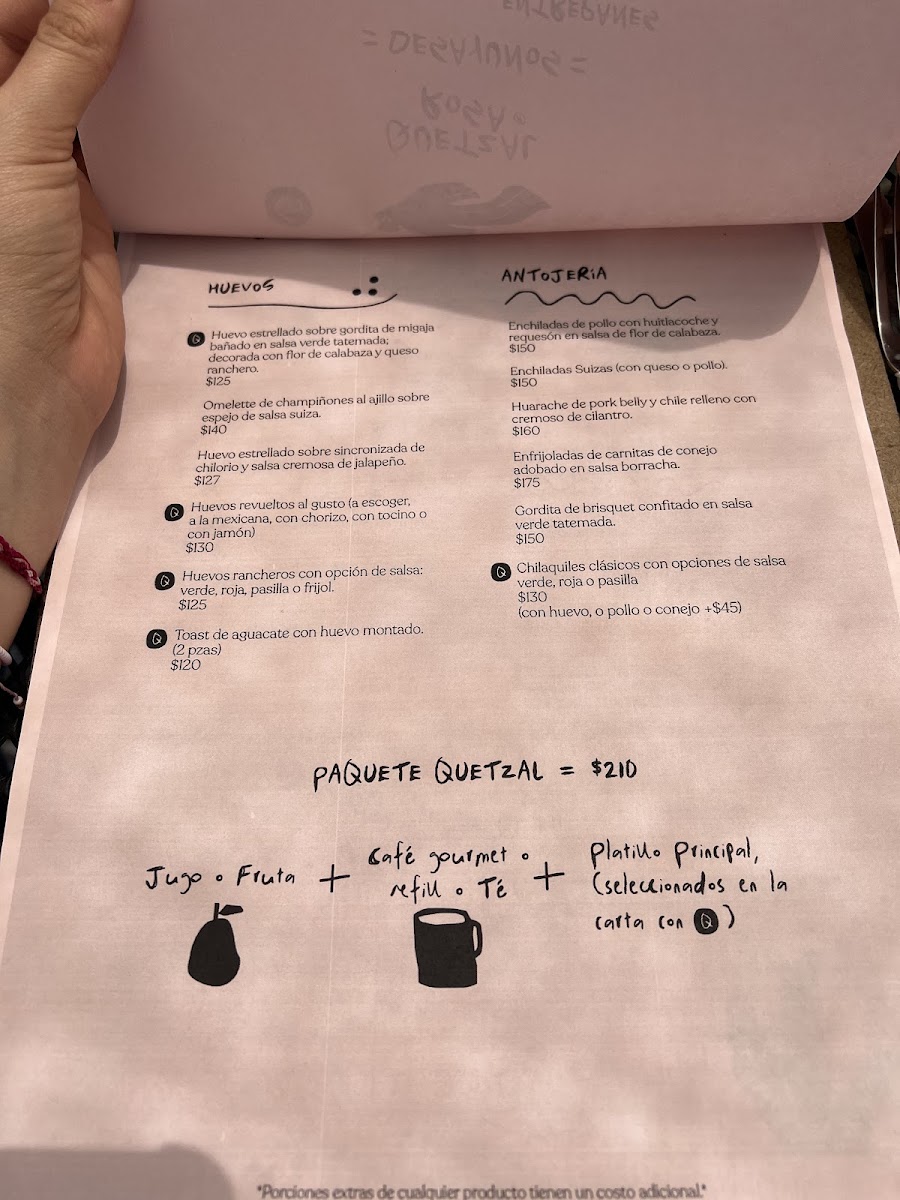 ENTREPANES
= DESAYUNOS =
ROSA.
QUETZAL
HUEVOS
Q Huevo estrellado sobre gordita de migaja
bañado en salsa verde tatemada;
decorada con flor de calabaza y queso
ranchero.
$125
Omelette de champiñones al ajillo sobre
espejo de salsa suiza.
$140
Huevo estrellado sobre sincronizada de
chilorio y salsa cremosa de jalapeño.
$127
Q Huevos revueltos al gusto (a escoger,
a la mexicana, con chorizo, con tocino o
con jamón)
$130
Q Huevos rancheros con opción de salsa:
verde, roja, pasilla o frijol.
$125
Q Toast de aguacate con huevo montado.
(2 pzas)
$120
ANTOJERíA
Enchiladas de pollo con huitlacoche y
requesón en salsa de flor de calabaza.
$150
Enchiladas Suizas (con queso o pollo).
$150
Huarache de pork belly y chile relleno con
cremoso de cilantro.
$160
Enfrijoladas de carnitas de conejo
adobado en salsa borracha.
$175
Gordita de brisquet confitado en salsa
verde tatemada.
$150
Q Chilaquiles clásicos con opciones de salsa
verde, roja o pasilla
$130
(con huevo, o pollo o conejo +$45)
PAQUETE QUETZAL = $210
Jugo o Fruta + Café gourmet o
refill o Té + Platillo Principal,
(seleccionados en la
carta con Q)
*Porciones extras de cualquier producto tienen un costo adicional.*